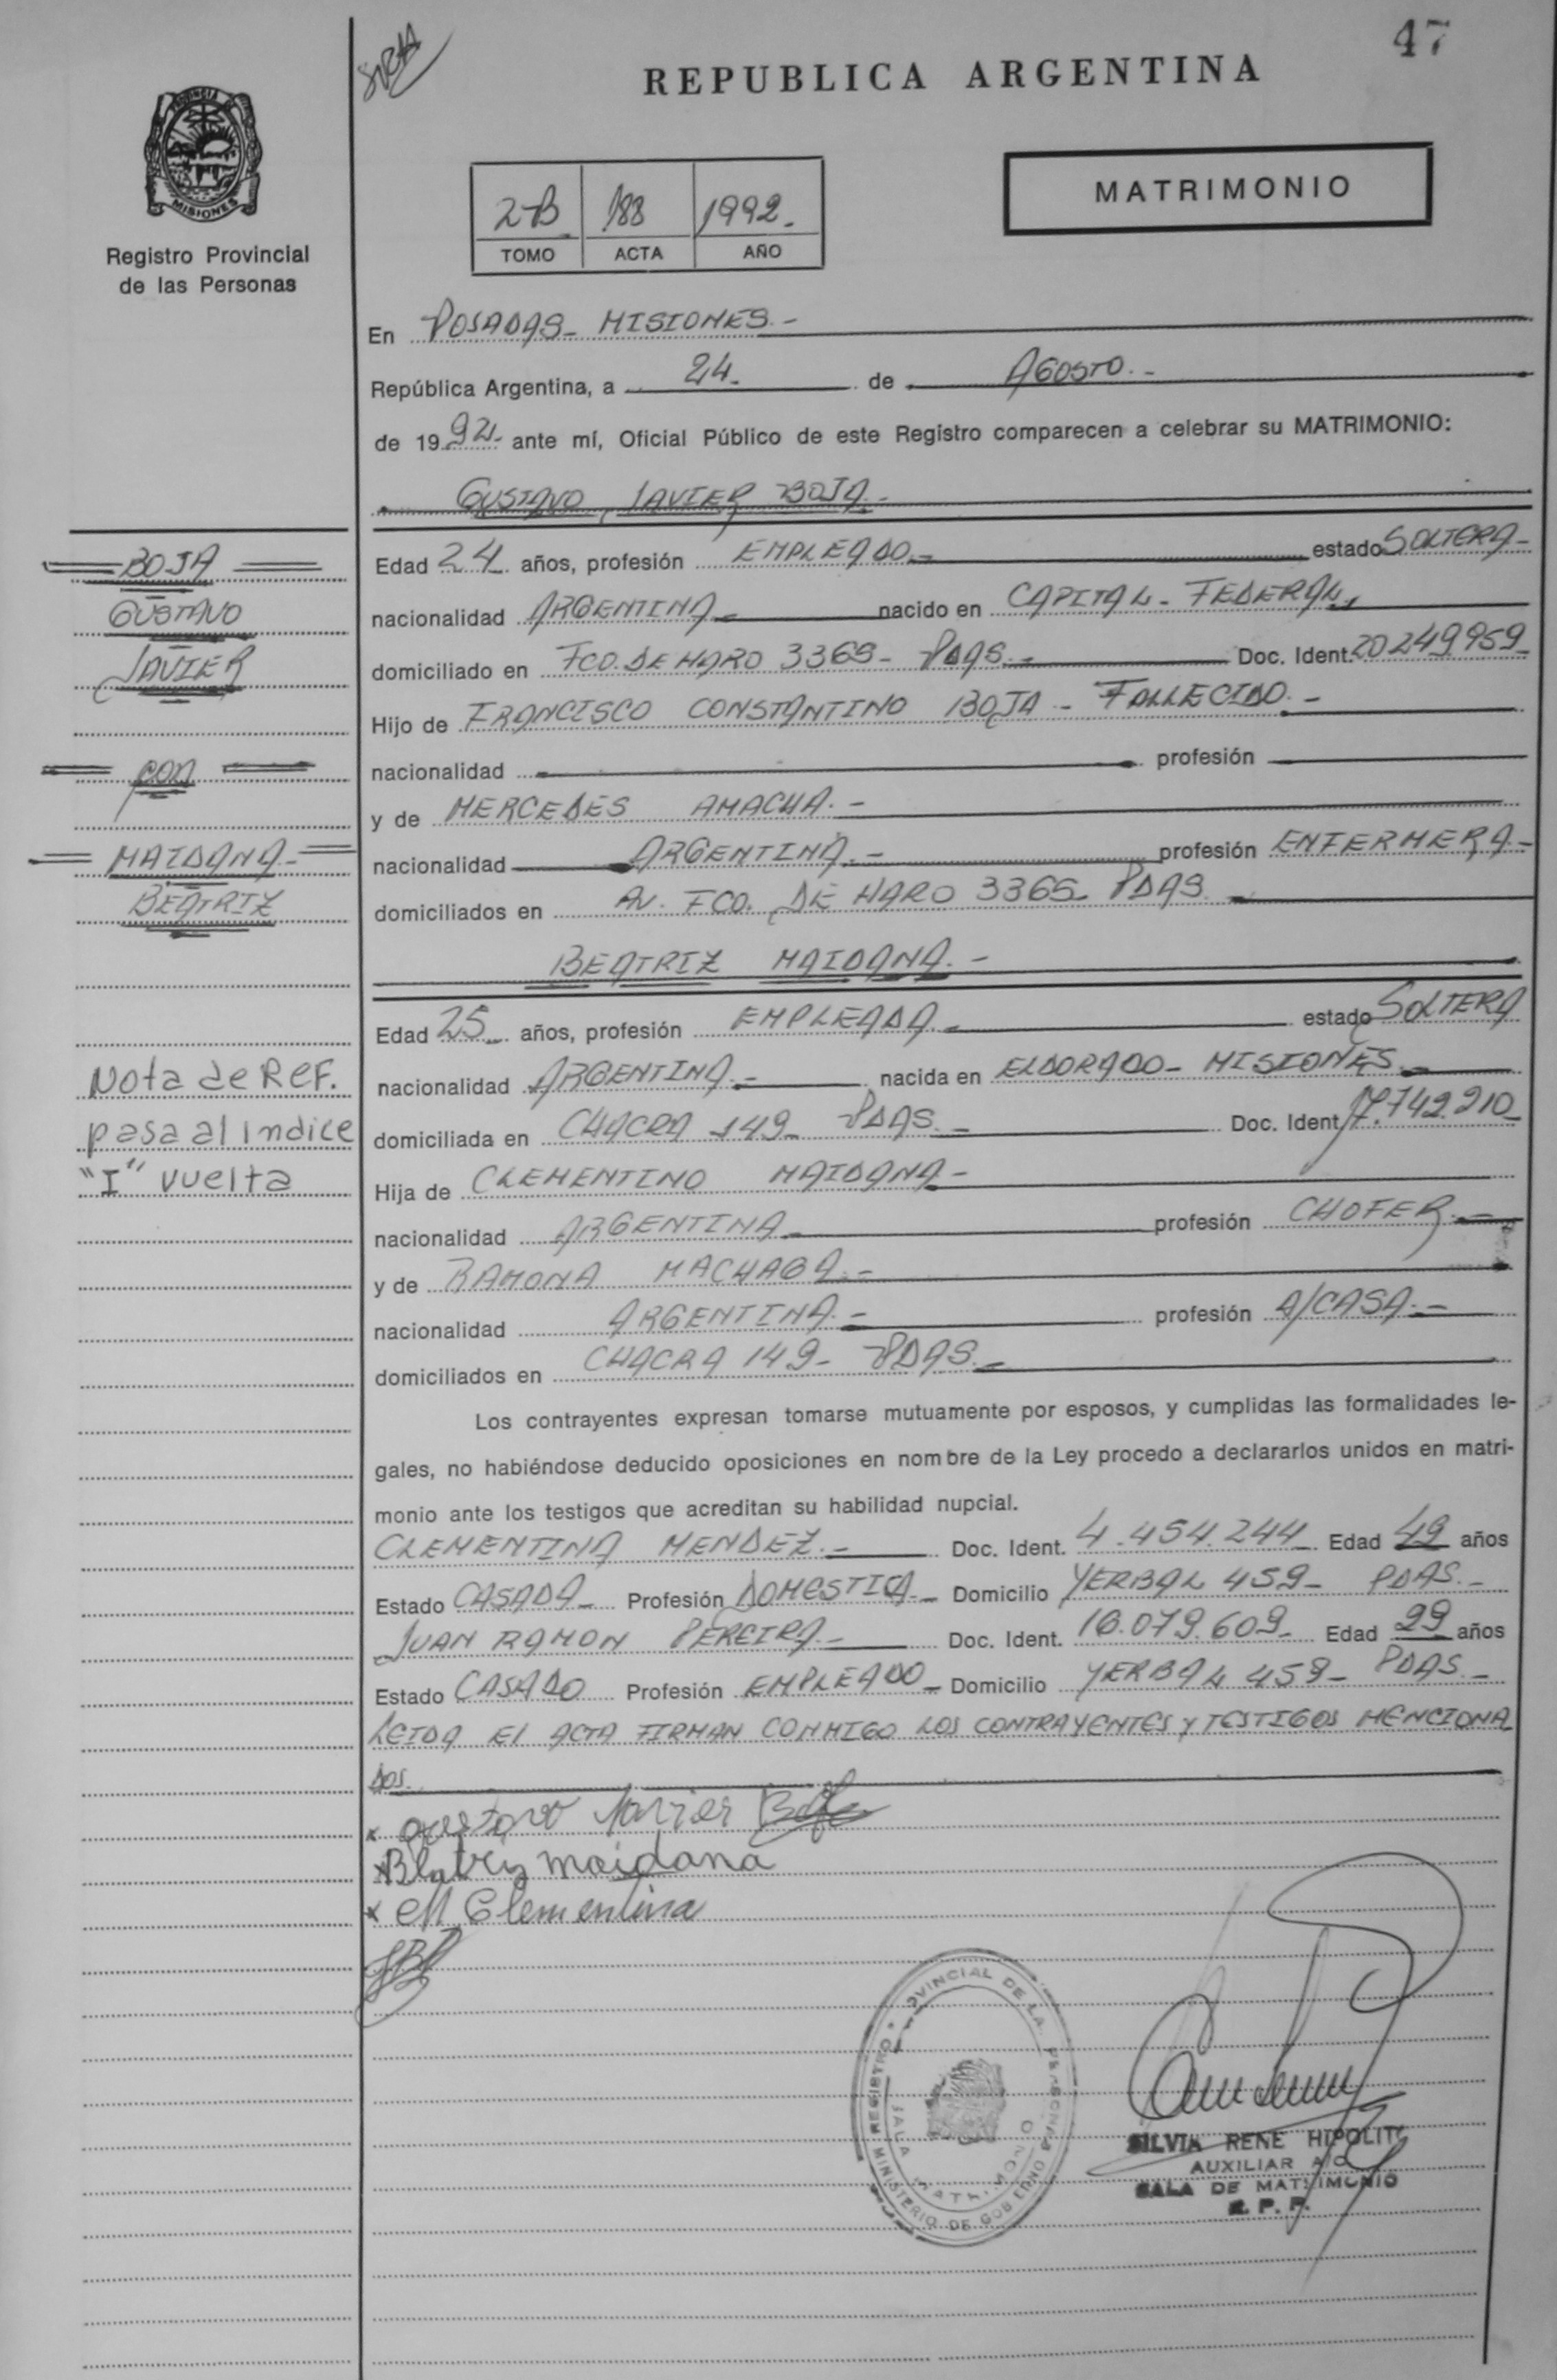 47
REPUBLICA ARGENTINA
MISIONES
Registro Provincial
de las Personas
2-B 188 1992
TOMO ACTA AÑO
MATRIMONIO
En POSADAS - MISIONES.-
República Argentina, a 24 de AGOSTO.-
de 1992 ante mí, Oficial Público de este Registro comparecen a celebrar su MATRIMONIO:
GUSTAVO JAVIER BOJA.-
BOJA
GUSTAVO
JAVIER
CON
MAIDANA
BEATRIZ
Edad 24 años, profesión EMPLEADO.- estado SOLTERA-
nacionalidad ARGENTINA- nacido en CAPITAL - FEDERAL
domiciliado en FCO. DE HARO 3365- PDAS.- Doc. Ident. 20249959
Hijo de FRANCISCO CONSTANTINO BOJA - FALLECIDO.-
nacionalidad profesión
y de MERCEDES AMACHA.-
nacionalidad ARGENTINA.- profesión ENFERMERA-
domiciliados en AV. FCO. DE HARO 3365- PDAS.
BEATRIZ MAIDANA.-
Edad 25 años, profesión EMPLEADA.- estado SOLTERA
nacionalidad ARGENTINA.- nacida en ELDORADO- MISIONES.-
domiciliada en CHACRA 149- PDAS.- Doc. Ident. 17.742.910
Hija de CLEMENTINO MAIDANA-
nacionalidad ARGENTINA- profesión CHOFER.-
y de RAMONA MACHAGA.-
nacionalidad ARGENTINA.- profesión A/CASA.-
domiciliados en CHACRA 149- PDAS.-
Nota de Ref.
pasa al indice
"I" vuelta
Los contrayentes expresan tomarse mutuamente por esposos, y cumplidas las formalidades le-
gales, no habiéndose deducido oposiciones en nombre de la Ley procedo a declararlos unidos en matri-
monio ante los testigos que acreditan su habilidad nupcial.
CLEMENTINA MENDEZ.- Doc. Ident. 4.454.244 Edad 49 años
Estado CASADA- Profesión DOMESTICA- Domicilio YERBAL 459- PDAS.-
JUAN RAMON PEREIRA- Doc. Ident. 16.079.609- Edad 29 años
Estado CASADO Profesión EMPLEADO- Domicilio YERBAL 459- PDAS.-
LEIDA EL ACTA FIRMAN CONMIGO LOS CONTRAYENTES Y TESTIGOS MENCIONA
DOS.
x Gustavo Javier Boja
x Beatriz maidana
x M Clementina
REGISTRO PROVINCIAL DE LAS PERSONAS
MINISTERIO DE GOBIERNO
SALA MATRIMONIO
SILVIA RENE HIPOLITO
AUXILIAR A/C
SALA DE MATRIMONIO
R. P. P.